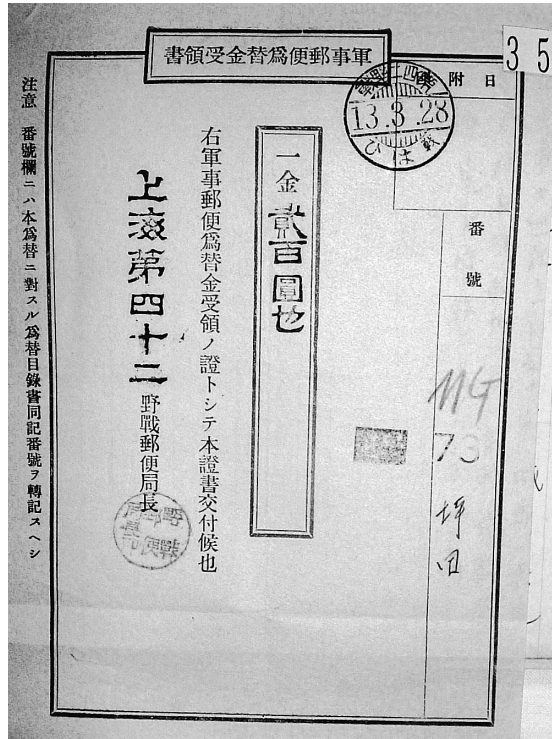 軍事郵便爲替金受領書
35
日附
13.3.28
番號
73
坪田
一金貳百圓也
右軍事郵便爲替金受領ノ證トシテ本證書交付候也
上海第四十二野戰郵便局長
注意 番號欄ニハ本爲替ニ對スル爲替目錄書同記番號ヲ轉記スヘシ